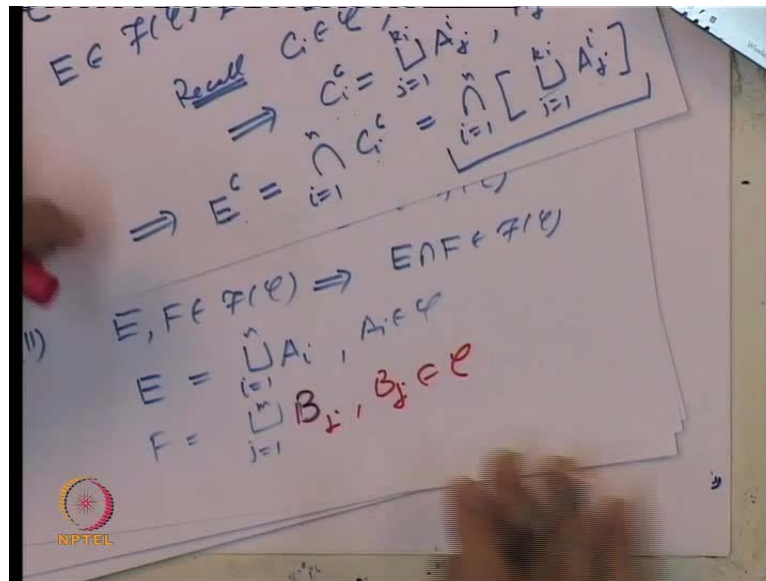 E ∈ F(C)
Recall C_i ∈ C,
⟹ C_i^c = ⊔_{j=1}^{k_i} A_j^i ,
⟹ E^c = ⋂_{i=1}^{n} C_i^c = ⋂_{i=1}^{n} [ ⊔_{j=1}^{k_i} A_j^i ]
II) E, F ∈ F(C) ⟹ E ∩ F ∈ F(C)
E = ⊔_{i=1}^{n} A_i , A_i ∈ C
F = ⊔_{j=1}^{m} B_j , B_j ∈ C
NPTEL